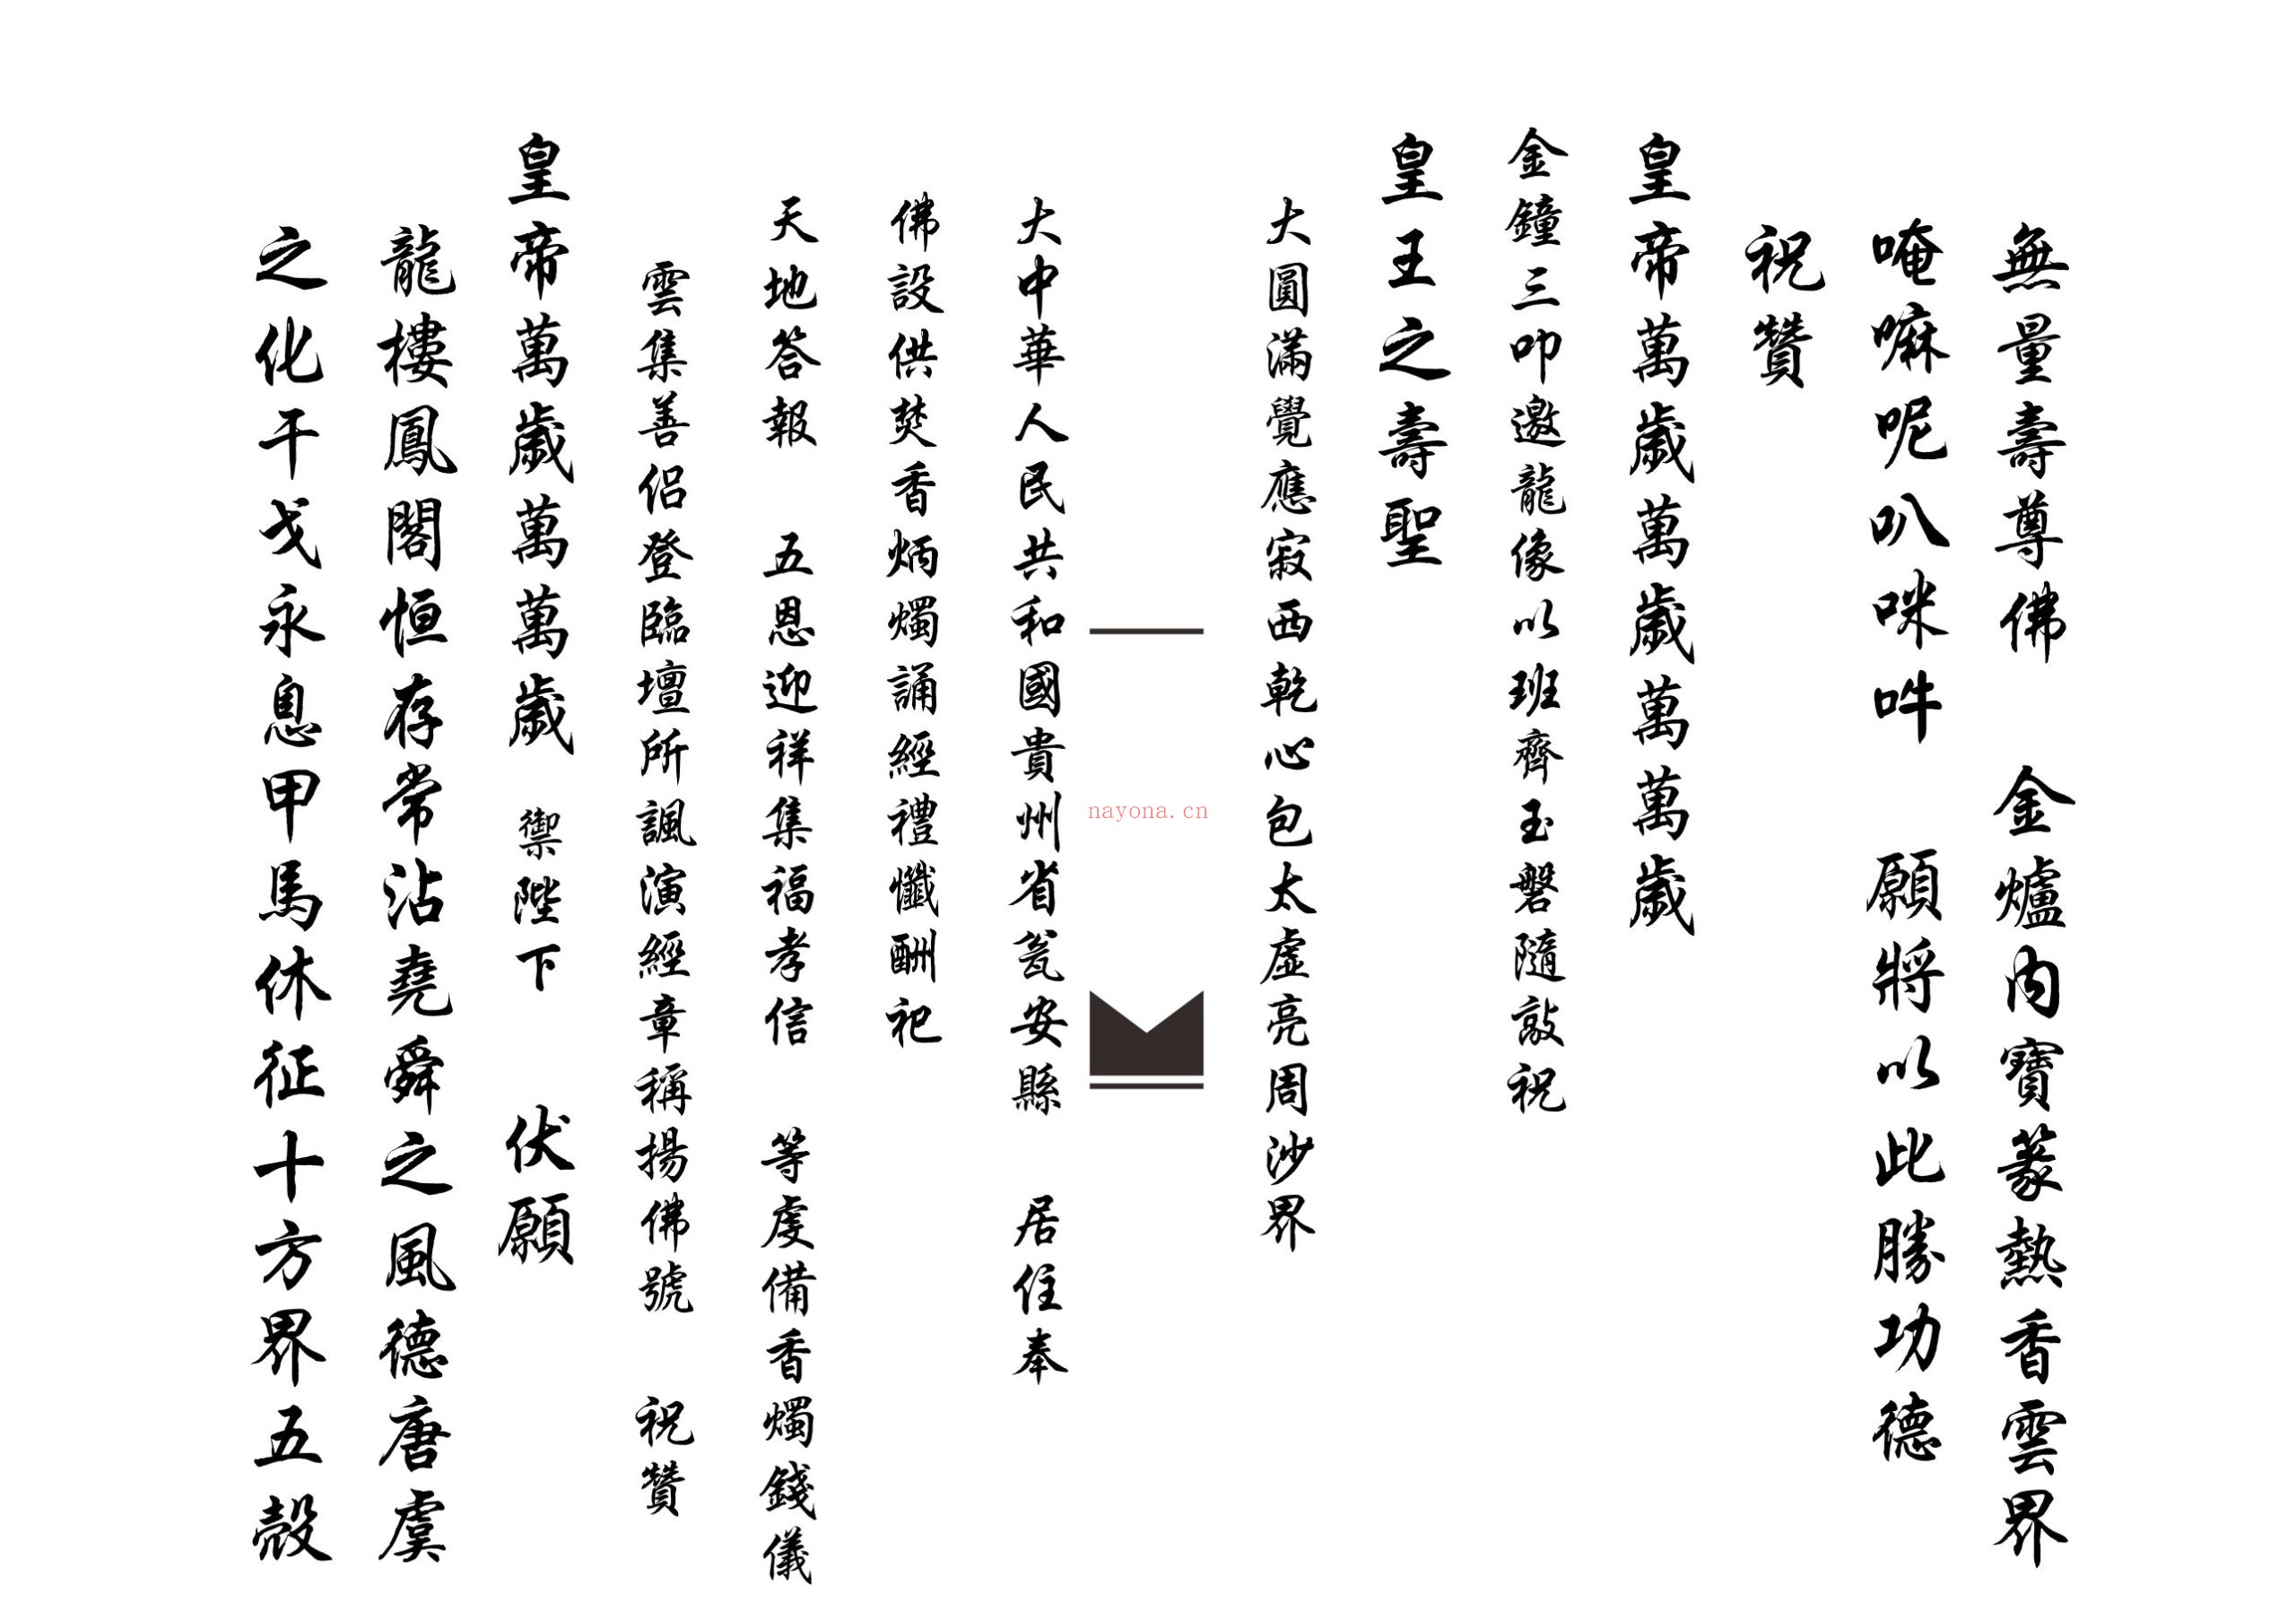 無量壽尊佛　金爐內寶篆熱香雲界
唵嘛呢叭咪吽　願將以此勝功德
祝贊
皇帝萬歲萬歲萬萬歲
金鐘三叩邀龍像以班齊玉磬隨敲祝
皇王之壽聖
大圓滿覺應寂西乾心包太虛亮周沙界
nayona.cn
大中華人民共和國貴州省瓮安縣　居住奉
佛設供焚香炳燭誦經禮懺酬祀
天地答報　五恩迎祥集福孝信　等虔備香燭錢儀
雲集善侶登臨壇所諷演經章稱揚佛號　祝贊
皇帝萬歲萬萬歲　禦陛下　伏願
龍樓鳳閣恒存常沾堯舜之風德唐虞
之化干戈永息甲馬休征十方界五殼